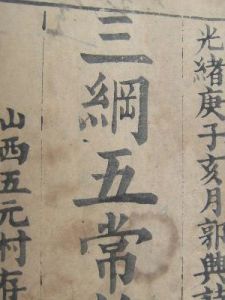 光緒庚子亥月郭興
三綱五常
山西五元村存